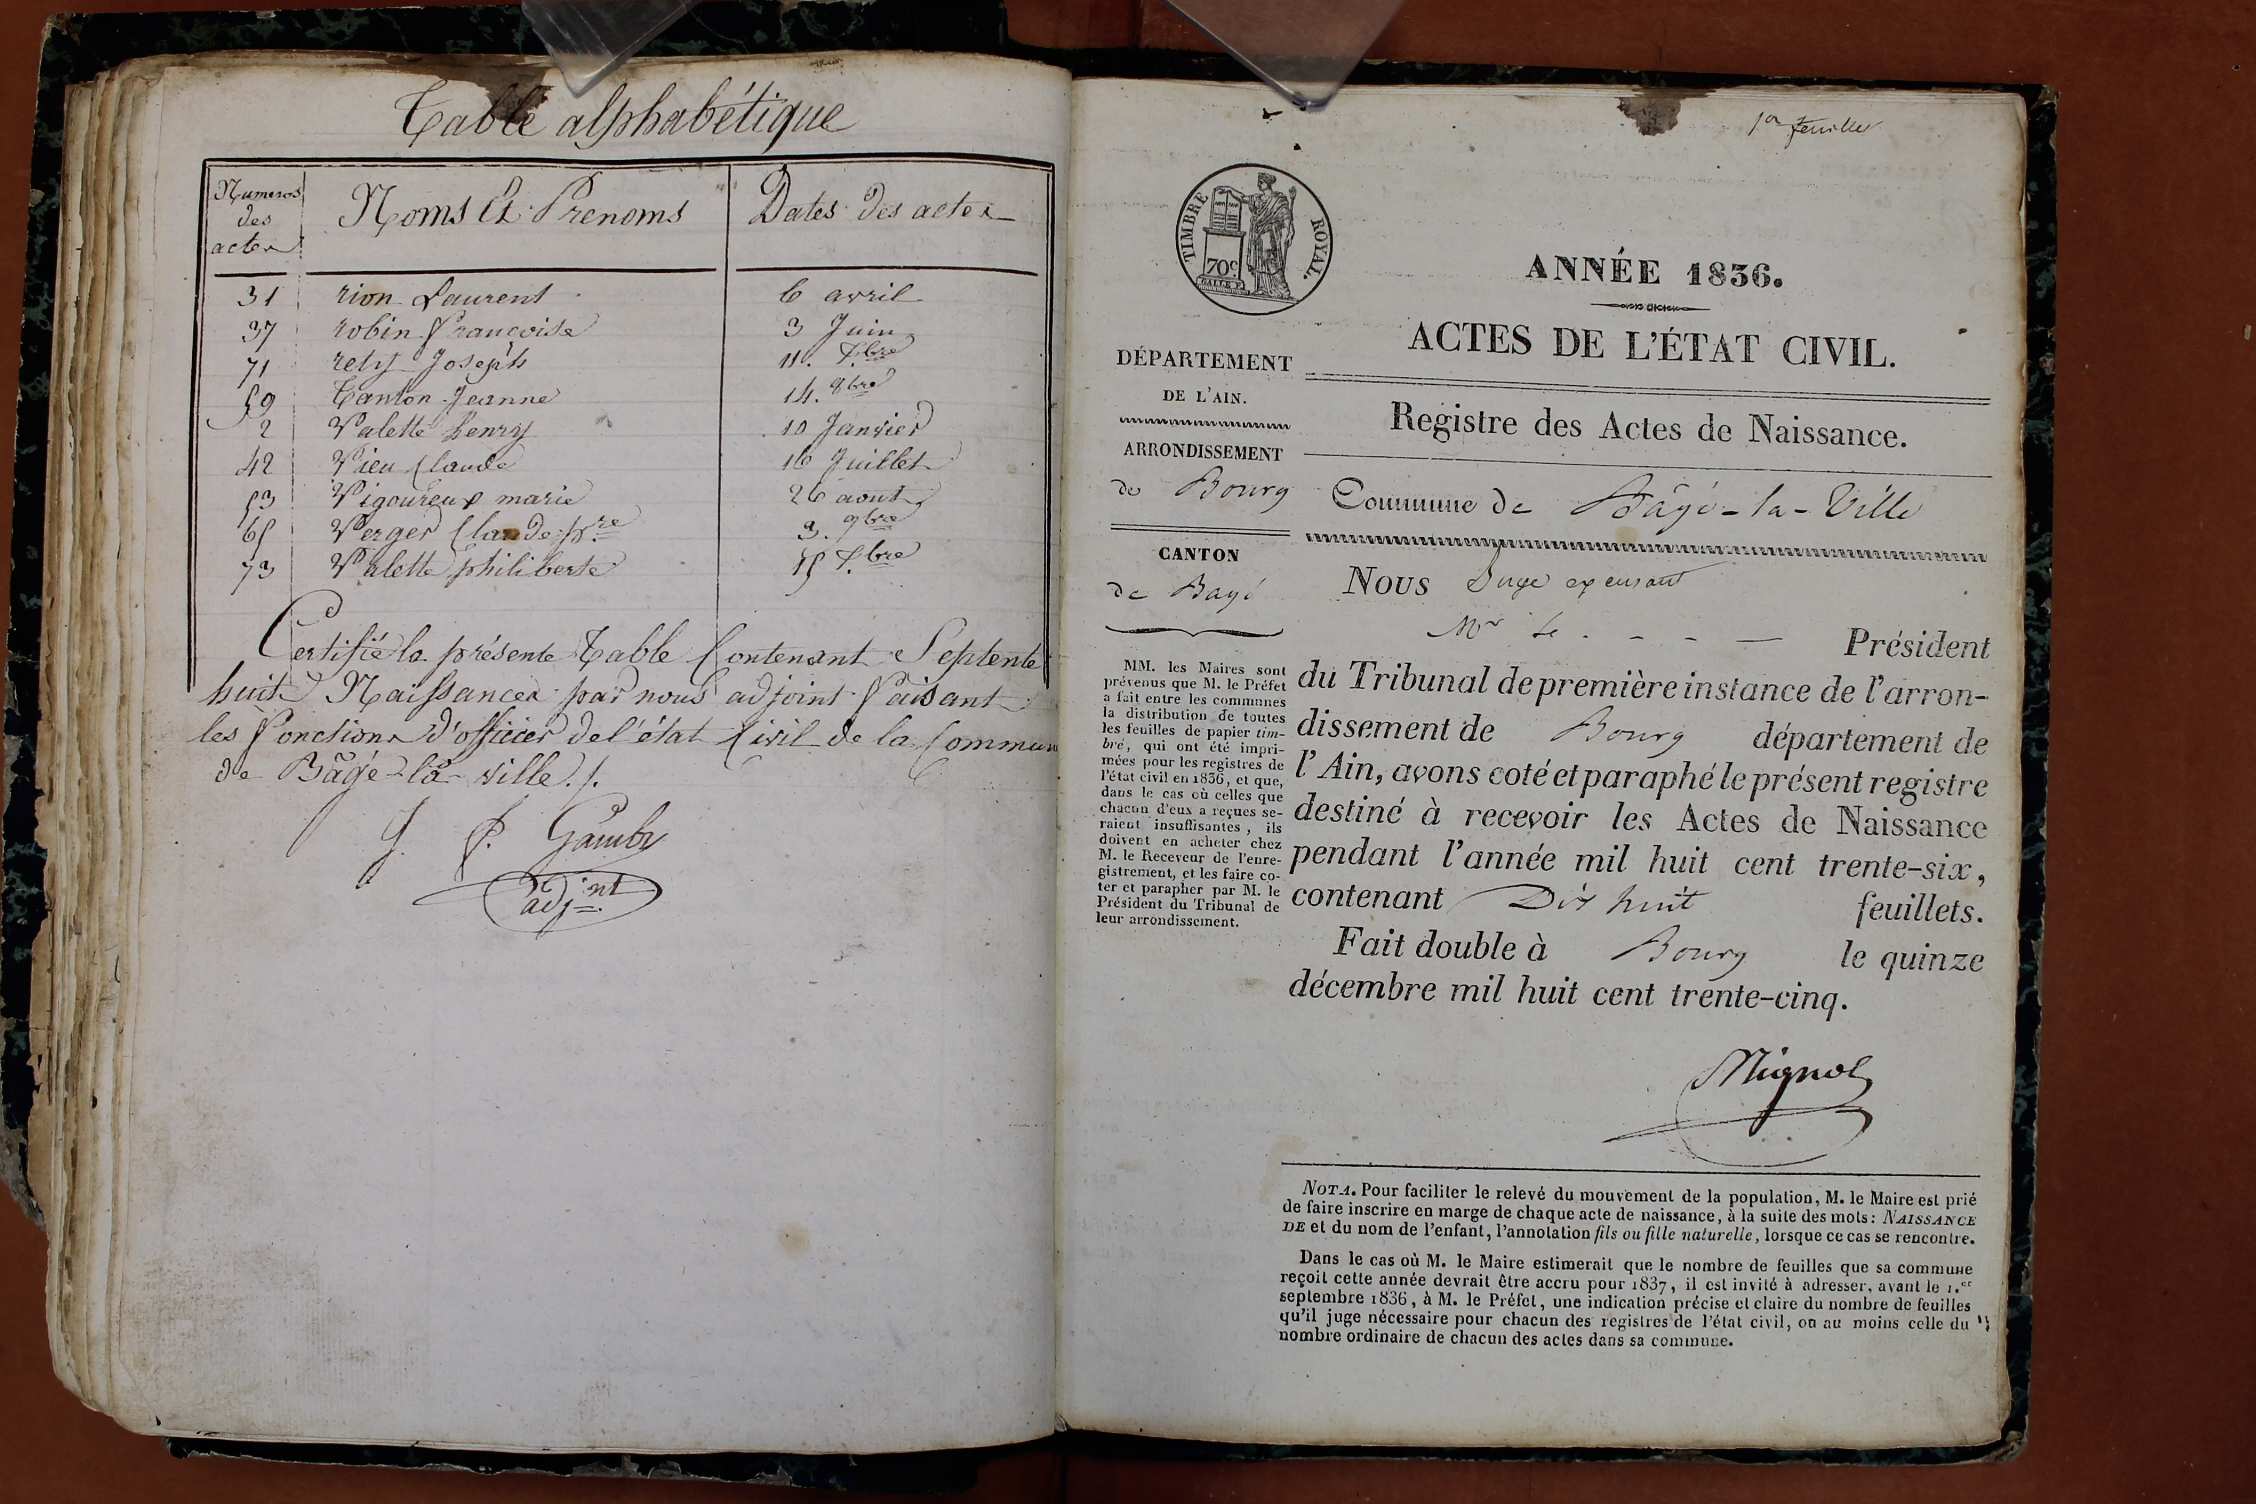 Table alphabétique
Numeros des actes | Noms Et Prenoms | Dates des actes
31 rion Laurent 6 avril
37 robin Francoise 3 Juin
71 rety Joseph 11. Xbre
59 Tanton Jeanne 14. 8bre
2 Valette henry 10 Janvier
42 Vieu Claude 16 Juillet
53 Vigoureux marie 26 aout
65 Verger Claude prre 3. 9bre
73 Valette philiberte 15 Xbre
Certifié la présente Table Contenant Septente
huit Naissances par nous adjoint Faisant
les Fonctions d'officier de l'état Civil de la Commune
de Bâgé-la-ville ./.
J. P. Gambi
adjnt
1er feuillet
TIMBRE ROYAL.
70c.
ANNÉE 1836.
ACTES DE L'ÉTAT CIVIL.
Registre des Actes de Naissance.
Commune de Bâgé-la-Ville
DÉPARTEMENT
DE L'AIN.
ARRONDISSEMENT
de Bourg
CANTON
de Bagé
MM. les Maires sont
prévenus que M. le Préfet
a fait entre les communes
la distribution de toutes
les feuilles de papier tim-
bré, qui ont été impri-
mées pour les registres de
l'état civil en 1836, et que,
dans le cas où celles que
chacun d'eux a reçues se-
raient insuffisantes, ils
doivent en acheter chez
M. le Receveur de l'enre-
gistrement, et les faire co-
ter et parapher par M. le
Président du Tribunal de
leur arrondissement.
Nous Juge excusant
Mr le - - - Président
du Tribunal de première instance de l'arron-
dissement de Bourg département de
l'Ain, avons coté et paraphé le présent registre
destiné à recevoir les Actes de Naissance
pendant l'année mil huit cent trente-six,
contenant Dix huit feuillets.
Fait double à Bourg le quinze
décembre mil huit cent trente-cinq.
Mignot
NOTA. Pour faciliter le relevé du mouvement de la population, M. le Maire est prié
de faire inscrire en marge de chaque acte de naissance, à la suite des mots: NAISSANCE
DE et du nom de l'enfant, l'annotation fils ou fille naturelle, lorsque ce cas se rencontre.
Dans le cas où M. le Maire estimerait que le nombre de feuilles que sa commune
reçoit cette année devrait être accru pour 1837, il est invité à adresser, avant le 1.er
septembre 1836, à M. le Préfet, une indication précise et claire du nombre de feuilles
qu'il juge nécessaire pour chacun des registres de l'état civil, ou au moins celle du
nombre ordinaire de chacun des actes dans sa commune.